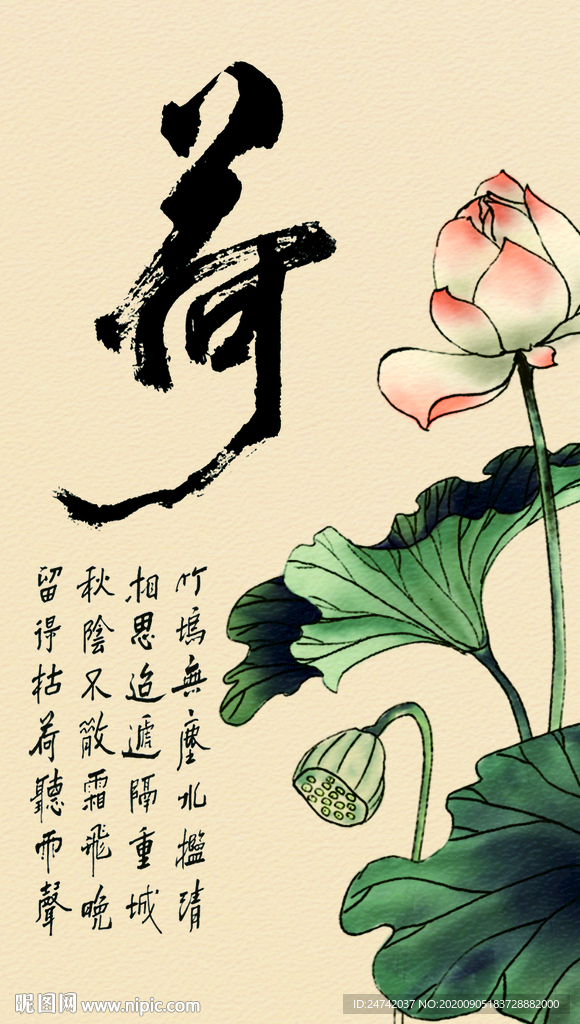 荷
竹塢無塵水檻清
相思迢遞隔重城
秋陰不散霜飛晚
留得枯荷聽雨聲
昵图网 www.nipic.com
ID:24742037 NO:20200905183728882000